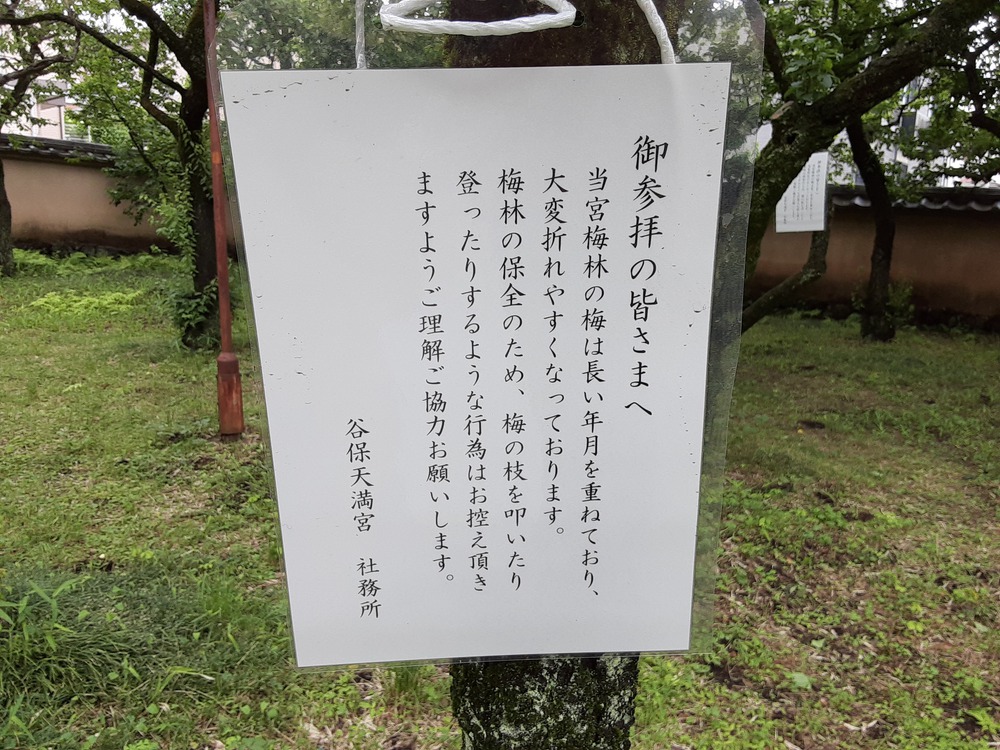 御参拝の皆さまへ
当宮梅林の梅は長い年月を重ねており、
大変折れやすくなっております。
梅林の保全のため、梅の枝を叩いたり
登ったりするような行為はお控え頂き
ますようご理解ご協力お願いします。
谷保天満宮　社務所